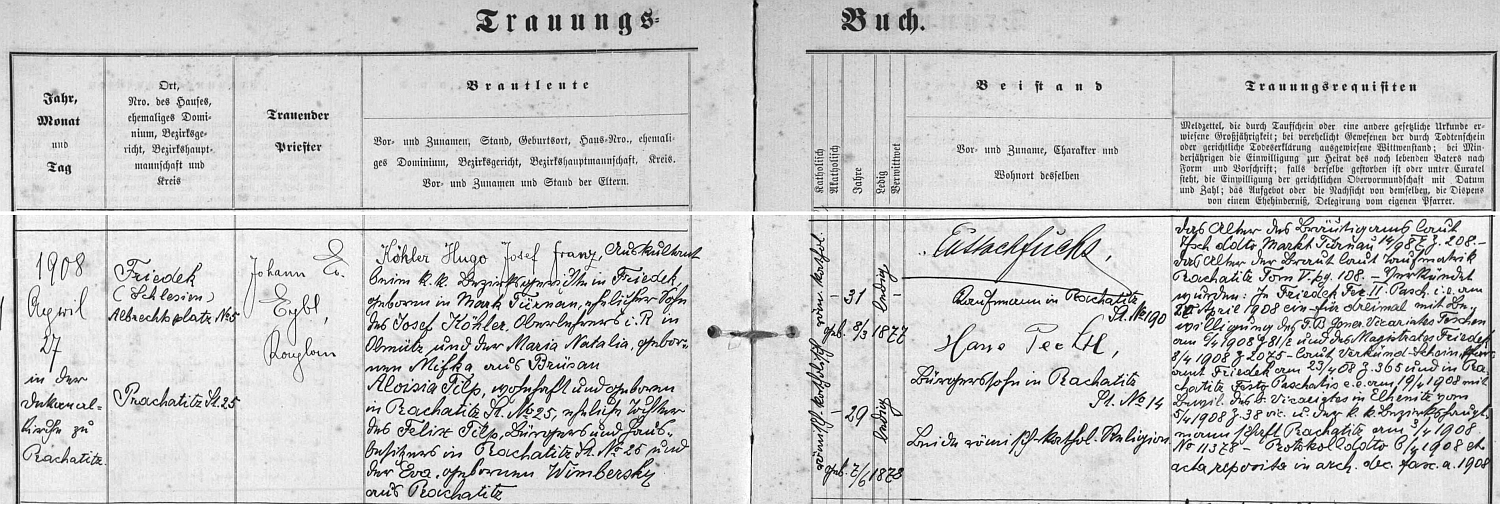 Trauungs-
Buch.
Jahr,
Monat
und
Tag
Ort,
Nro. des Hauses,
ehemaliges Domi-
nium, Bezirksge-
richt, Bezirkshaupt-
mannschaft und
Kreis
Trauender
Priester
Brautleute
Vor- und Zunamen, Stand, Geburtsort, Haus-Nro., ehemali-
ges Dominium, Bezirksgericht, Bezirkshauptmannschaft, Kreis.
Vor- und Zunamen und Stand der Eltern.
Katholisch
Akatholisch
Jahre
Ledig
Verwittwet
Beistand
Vor- und Zuname, Charakter und
Wohnort desselben
Trauungsrequisiten
Meldzettel, die durch Taufschein oder eine andere gesetzliche Urkunde er-
wiesene Großjährigkeit; bei verehelicht Gewesenen der durch Todtenschein
oder gerichtliche Todeserklärung ausgewiesene Wittwenstand; bei Min-
derjährigen die Einwilligung zur Heirat des noch lebenden Vaters nach
Form und Vorschrift; falls derselbe gestorben ist oder unter Curatel
steht, die Einwilligung der gerichtlichen Obervormundschaft mit Datum
und Zahl; das Aufgebot oder die Nachsicht von demselben, die Dispens
von einem Ehehinderniß, Delegirung vom eigenen Pfarrer.
1908
April
27
in der
Dekanal-
kirche zu
Prachatitz
Friedek
(Schlesien)
Albrechtsplatz No 5
Prachatitz St. 25
Johann Ev.
Eybl,
Kaplan
Köhler Hugo Josef Franz, Auskultant
beim k. k. Bezirksgerichte in Friedek,
geboren in Markt Türnau, ehelicher Sohn
des Josef Köhler, Oberlehrers i. R. in
Olmütz und der Maria Natalia, gebor-
nen Mifka aus Brüsau
Aloisia Pilp, wohnhaft und geboren
in Prachatitz St. No 25, ehelich Tochter
des Felix Pilp, Bürgers und Haus-
besitzers in Prachatitz St. No 25 und
der Eva, gebornen Wimbersky
aus Prachatitz
römisch-katholisch
römisch-kathol.
31
geb. 8/3 1877
ledig
29
geb. 7/6 1878
ledig
Kaufmann in Prachatitz
St. No 190
Hans
Bürgerssohn in Prachatitz
St. No 14
Beide römisch-kathol. Religion
das Alter des Bräutigams laut
ddto Markt Türnau 208.-
das Alter der Braut laut Taufmatrik
Prachatitz Tom V. pg. 108. - Verkündet
wurden: In Friedek Fer. II. Pasch. i. e. am
20 April 1908 ein für dreimal mit Be-
willigung des Vicariates Teschen
am 1908 und des Magistrates Friedek
8/4 1908 Z 2075 - laut Verkünd-Schein Pfarr-
amt Friedek am 23/4 08 Z. 365 und in Pra-
chatitz Festo Paschatis i. e. am 19/4 1908 mit
Bewil. des b. Vicariates in Elhenitz vom
5/4 1908 Z. 38 vic. u. der k. k. Bezirkshaupt-
mannschaft Prachatitz am 3/4 1908
No 11378 - Protokol ddto 1908 et
acta reposita in arch. dec. fasc. a. 1908